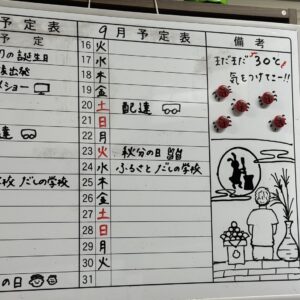 予定表
予定
の誕生日
出発
ショー
達
学校 だしの学校
の日
9月予定表
16 火
17 水
18 木
19 金
20 土 配達
21 日
22 月
23 火 秋分の日
24 水 ふるさと だしの学校
25 木
26 金
27 土
28 日
29 月
30 火
31
備考
まだまだ30℃
気をつけてネー!!